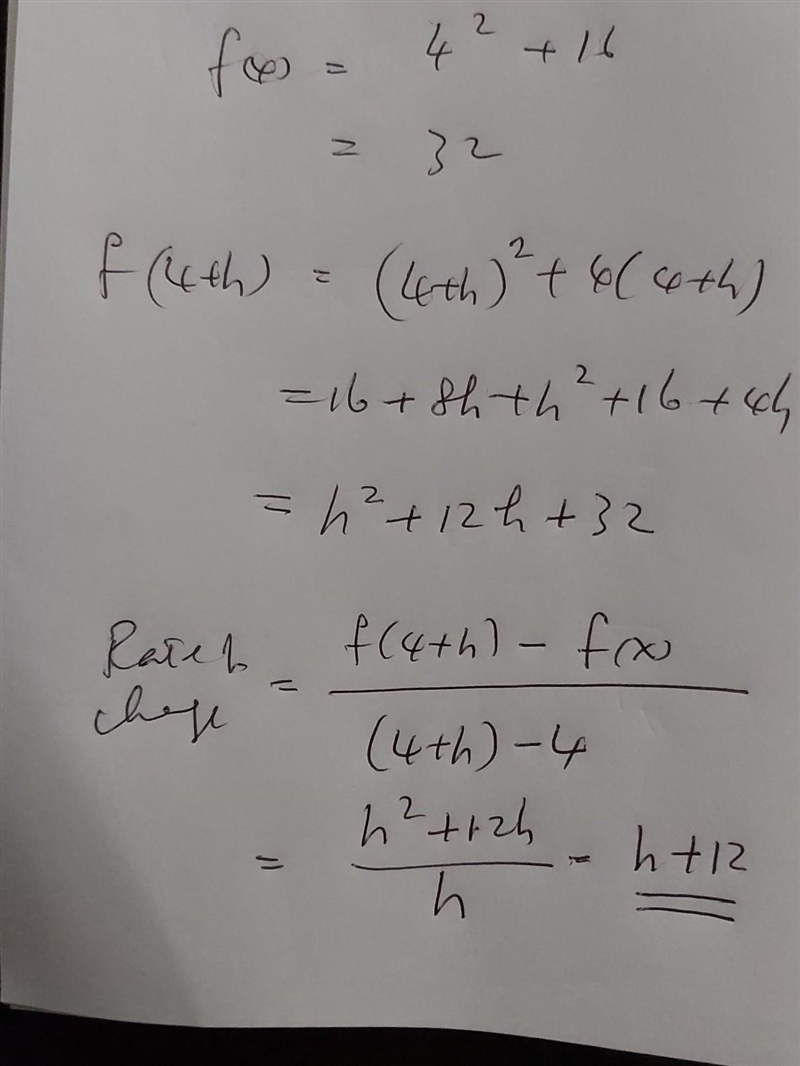 f(x) = 4² + 16
= 32
f(4+h) = (4+h)² + 4(4+h)
= 16 + 8h + h² + 16 + 4h
= h² + 12h + 32
Rate
change = f(4+h) - f(x) / (4+h) - 4
= h² + 12h / h = h + 12